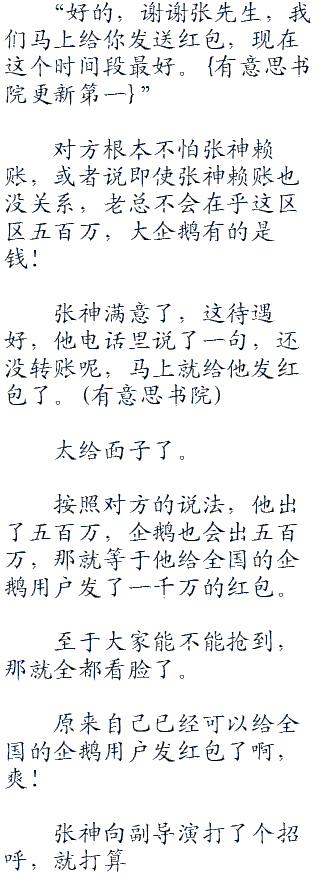 “好的，谢谢张先生，我
们马上给你发送红包，现在
这个时间段最好。{有意思书
院更新第一}”
对方根本不怕张神赖
账，或者说即使张神赖账也
没关系，老总不会在乎这区
区五百万，大企鹅有的是
钱！
张神满意了，这待遇
好，他电话里说了一句，还
没转账呢，马上就给他发红
包了。(有意思书院)
太给面子了。
按照对方的说法，他出
了五百万，企鹅也会出五百
万，那就等于他给全国的企
鹅用户发了一千万的红包。
至于大家能不能抢到，
那就全都看脸了。
原来自己已经可以给全
国的企鹅用户发红包了啊，
爽！
张神向副导演打了个招
呼，就打算